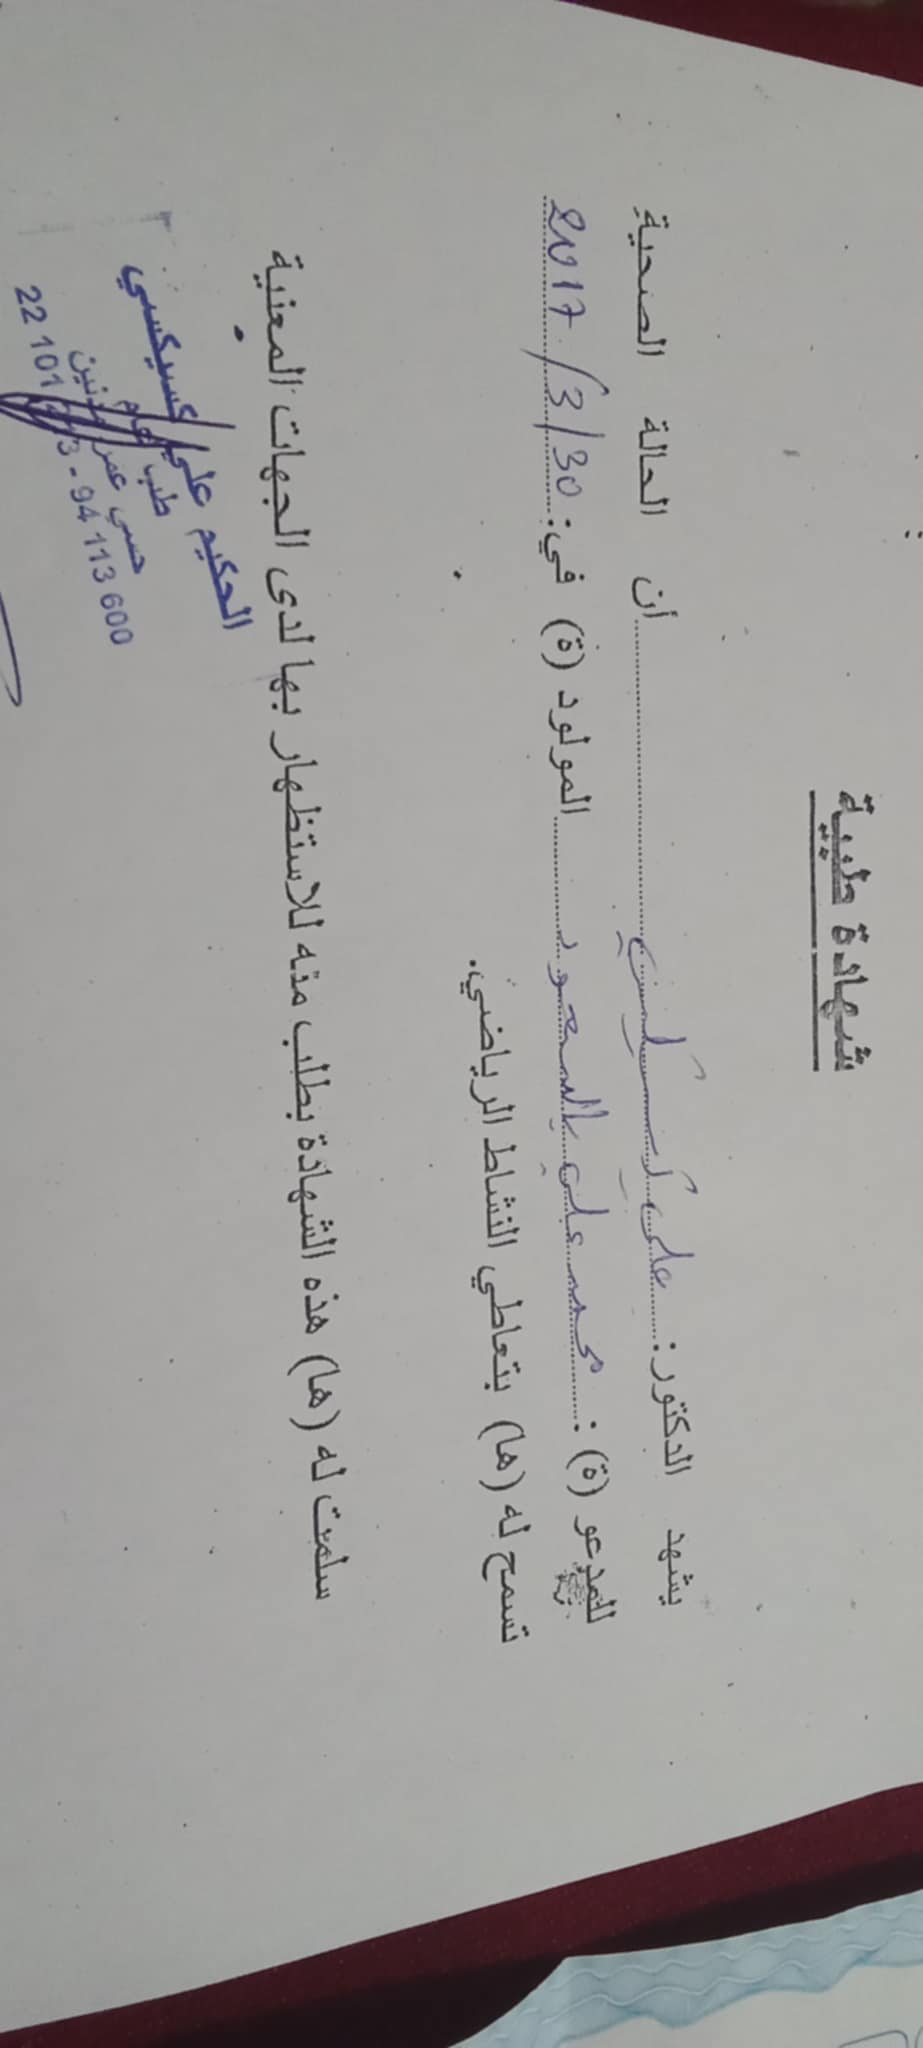 شهادة طبية
يشهد الدكتور: علي كسيكسي أن الحالة الصحية
للمدعو (ة) : محمد علي بالسعود المولود (ة) في: 30/3/2017
تسمح له (ها) بتعاطي النشاط الرياضي.
سلمت له (ها) هذه الشهادة بطلب منه للاستظهار بها لدى الجهات المعنية
الحكيم علي كسيكسي
طب عام
حسي عمر مدنين
22 101 - 94 113 600